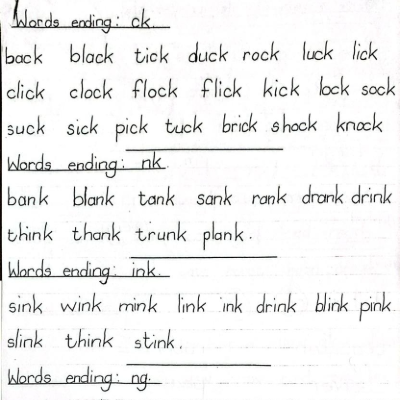 Words ending: ck.
back black tick duck rock luck lick
click clock flock flick kick lock sock
suck sick pick tuck brick shock knock
Words ending: nk.
bank blank tank sank rank drank drink
think thank trunk plank.
Words ending: ink.
sink wink mink link ink drink blink pink.
slink think stink.
Words ending: ng.